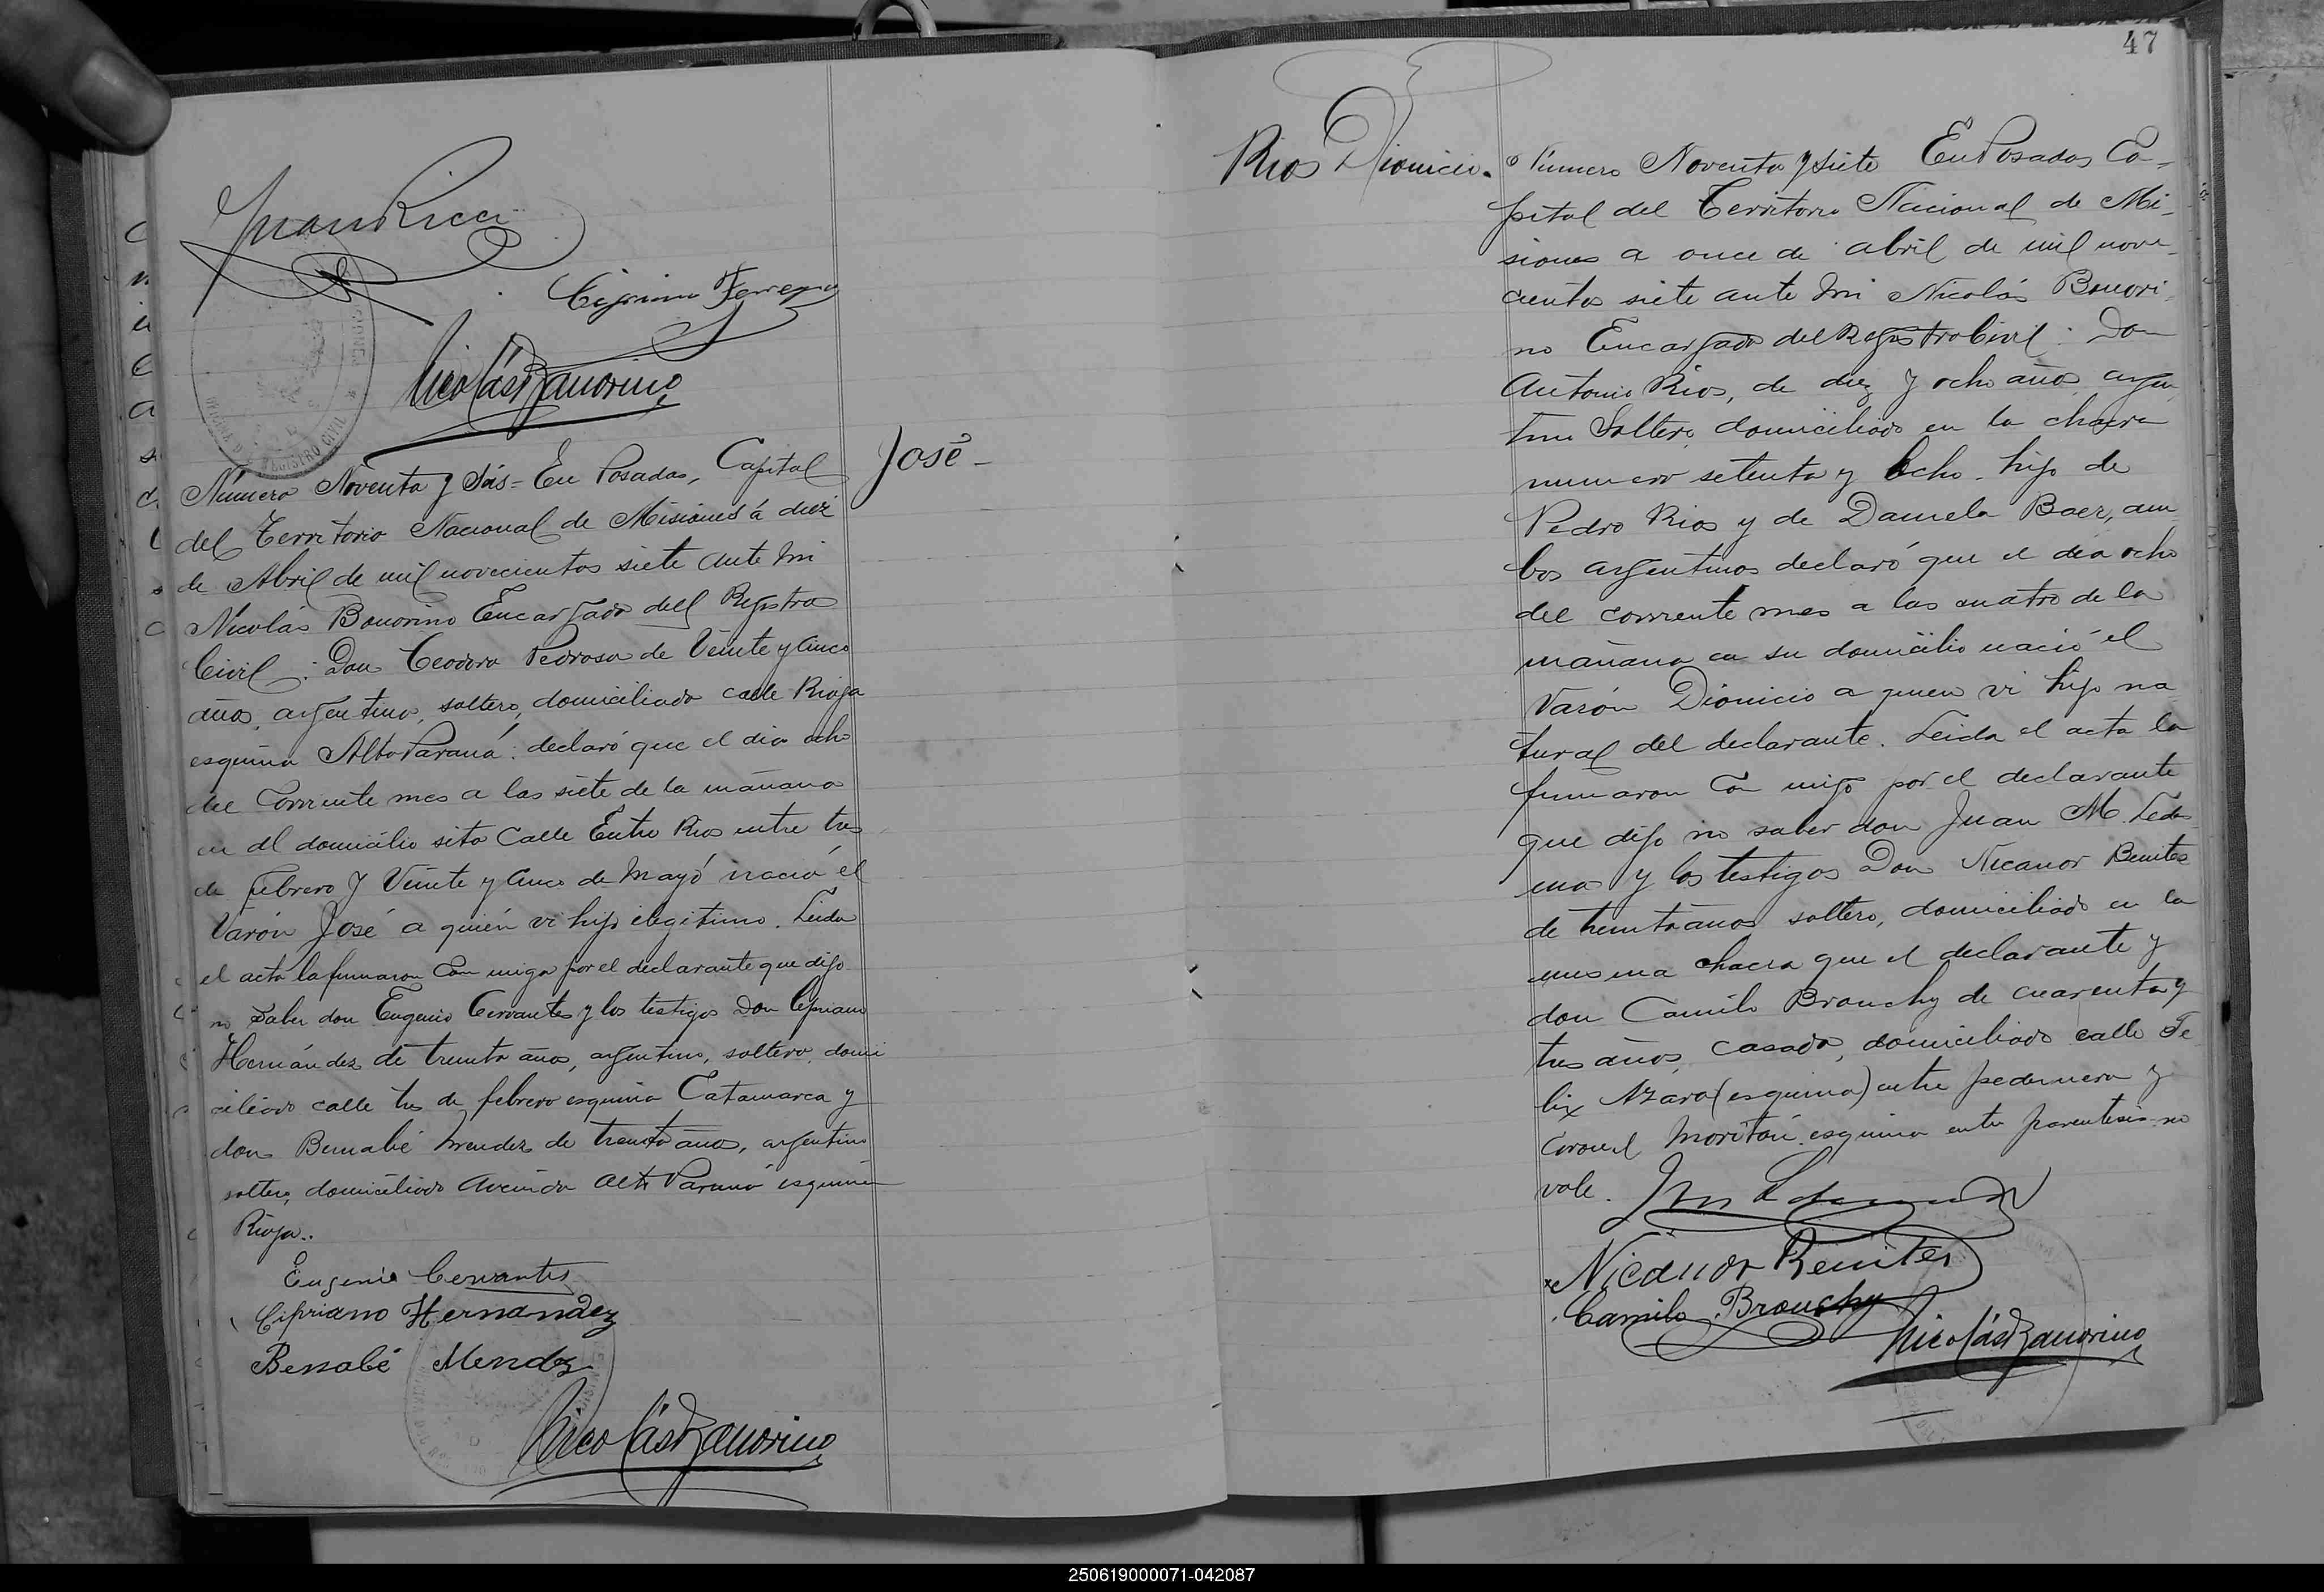 Juan Ricci
Nicolás Bonorino
Número Noventa y Séis = En Posadas, Capital
José -
del Territorio Nacional de Misiones á diez
de Abril de mil novecientos siete ante mi
Nicolás Bonorino Encargado del Registro
Civil : Don Teodoro Pedroso de Veinte y cinco
años, argentino, soltero, domiciliado calle Rioja
esquina Alto Paraná : declaró que el dia ocho
del Corriente mes a las siete de la mañana
en el domicilio sito Calle Entre Rios entre tres
de febrero y Veinte y cinco de Mayó nació el
Varón José a quién vi hijo ilegitimo. Leida
el acta la firmaron Con migo por el declarante que dijo
no Saber don Eugenio Cervantes y los testigos Don Cipriano
Hernández de treinta años, argentino, soltero, domi
ciliado calle tres de febrero esquina Catamarca y
don Bernabé Mendez de treinta años, argentino
soltero, domiciliado Avenida Alto Paraná esquina
Rioja..
Eugenio Cervantes
Cipriano Hernandez
Bernabé Mendez
Nicolás Bonorino
47
Rios Dionicio.
Número Noventa y Siete En Posadas Ca-
pital del Territorio Nacional de Mi-
siones a once de abril de mil nove-
cientos siete ante mi Nicolás Bonori-
no Encargado del Registro Civil : Don
Antonio Rios, de diez y ocho años, argen
tino Soltero, domiciliado en la chacra
numero setenta y ocho. hijo de
Pedro Rios y de Daniela Baez, am
bos argentinos declaró que el dia ocho
del corriente mes a las cuatro de la
mañana en su domicilio nació el
Varón Dionicio a quien vi hijo na
tural del declarante. Leida el acta la
firmaron Con migo por el declarante
que dijo no saber don Juan M. Ledes
ma y los testigos Don Nicanor Benites
de treinta años soltero, domiciliado en la
misma chacra que el declarante y
don Camilo Brouchy de cuarenta y
tres años, casado, domiciliado calle Fe
lix Azara (esquina) entre pedernera y
Coronel Moritán. esquina entre parentesis no
vale.
Nicanor Benites
Camilo Brouchy
Nicolás Bonorino
250619000071-042087